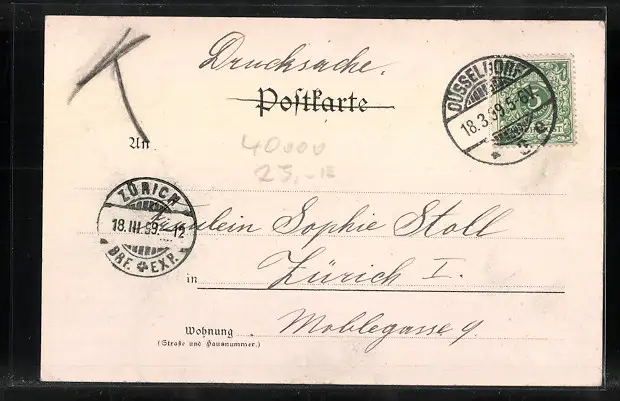 Drucksache.
Postkarte
DÜSSELDORF
18.3.99 5-6N
5
An
40000
25,-
ZÜRICH
18.III.99. 12
BRF. EXP.
Fräulein Sophie Stoll
in Zürich I.
Wohnung
(Straße und Hausnummer.)